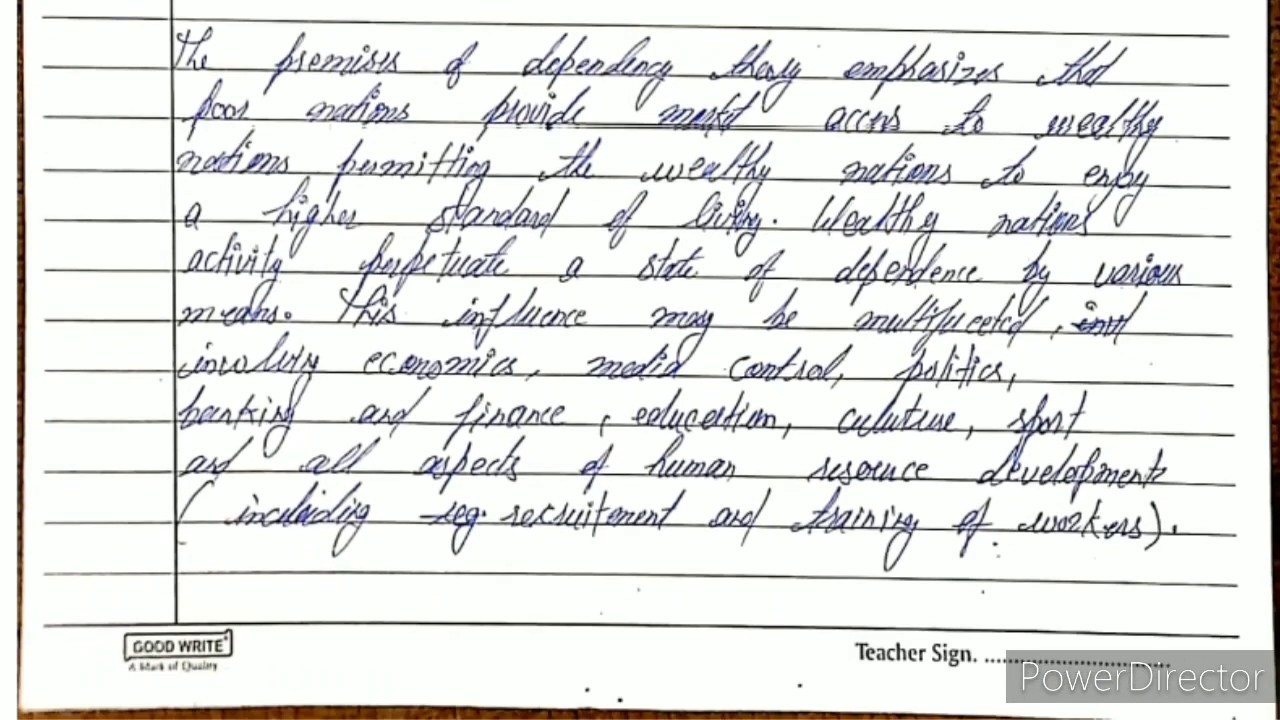 The premises of dependency theory emphasizes that
poor nations provide market access to wealthy
nations permitting the wealthy nations to enjoy
a higher standard of living. Wealthy nations
activity perpetuate a state of dependence by various
means. This influence may be multifuceted,
involving economics, media control, politics,
banking and finance, education, culuture, sport
and all aspects of human resource developments
(including reg. recruitement and training of workers).
GOOD WRITE
A Mark of Quality
Teacher Sign. ................................
PowerDirector